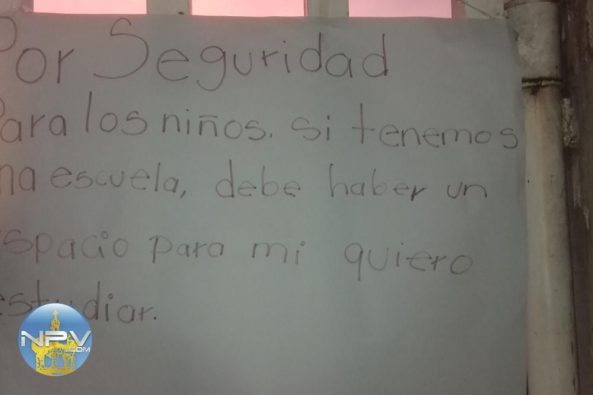 Por Seguridad
Para los niños. si tenemos
na escuela, debe haber un
spacio para mi quiero
estudiar.
NPV
.COM